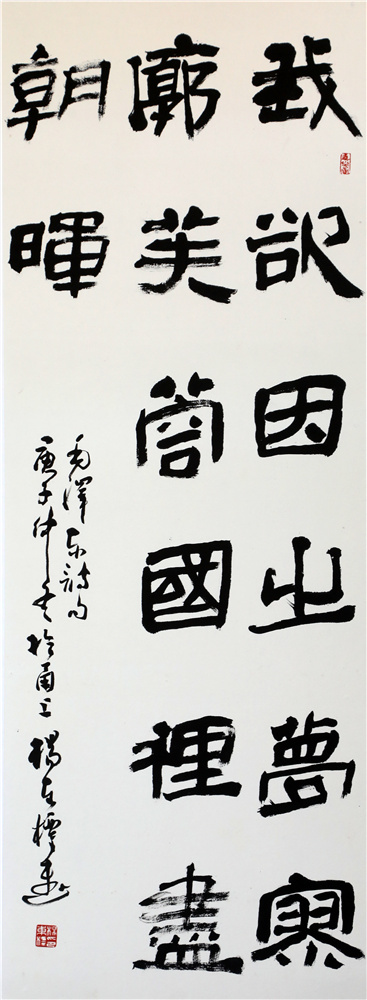 我欲因之夢寥
廓芙蓉國裡盡
朝暉
毛澤东詩句
庚子仲冬於甬上楊东標書